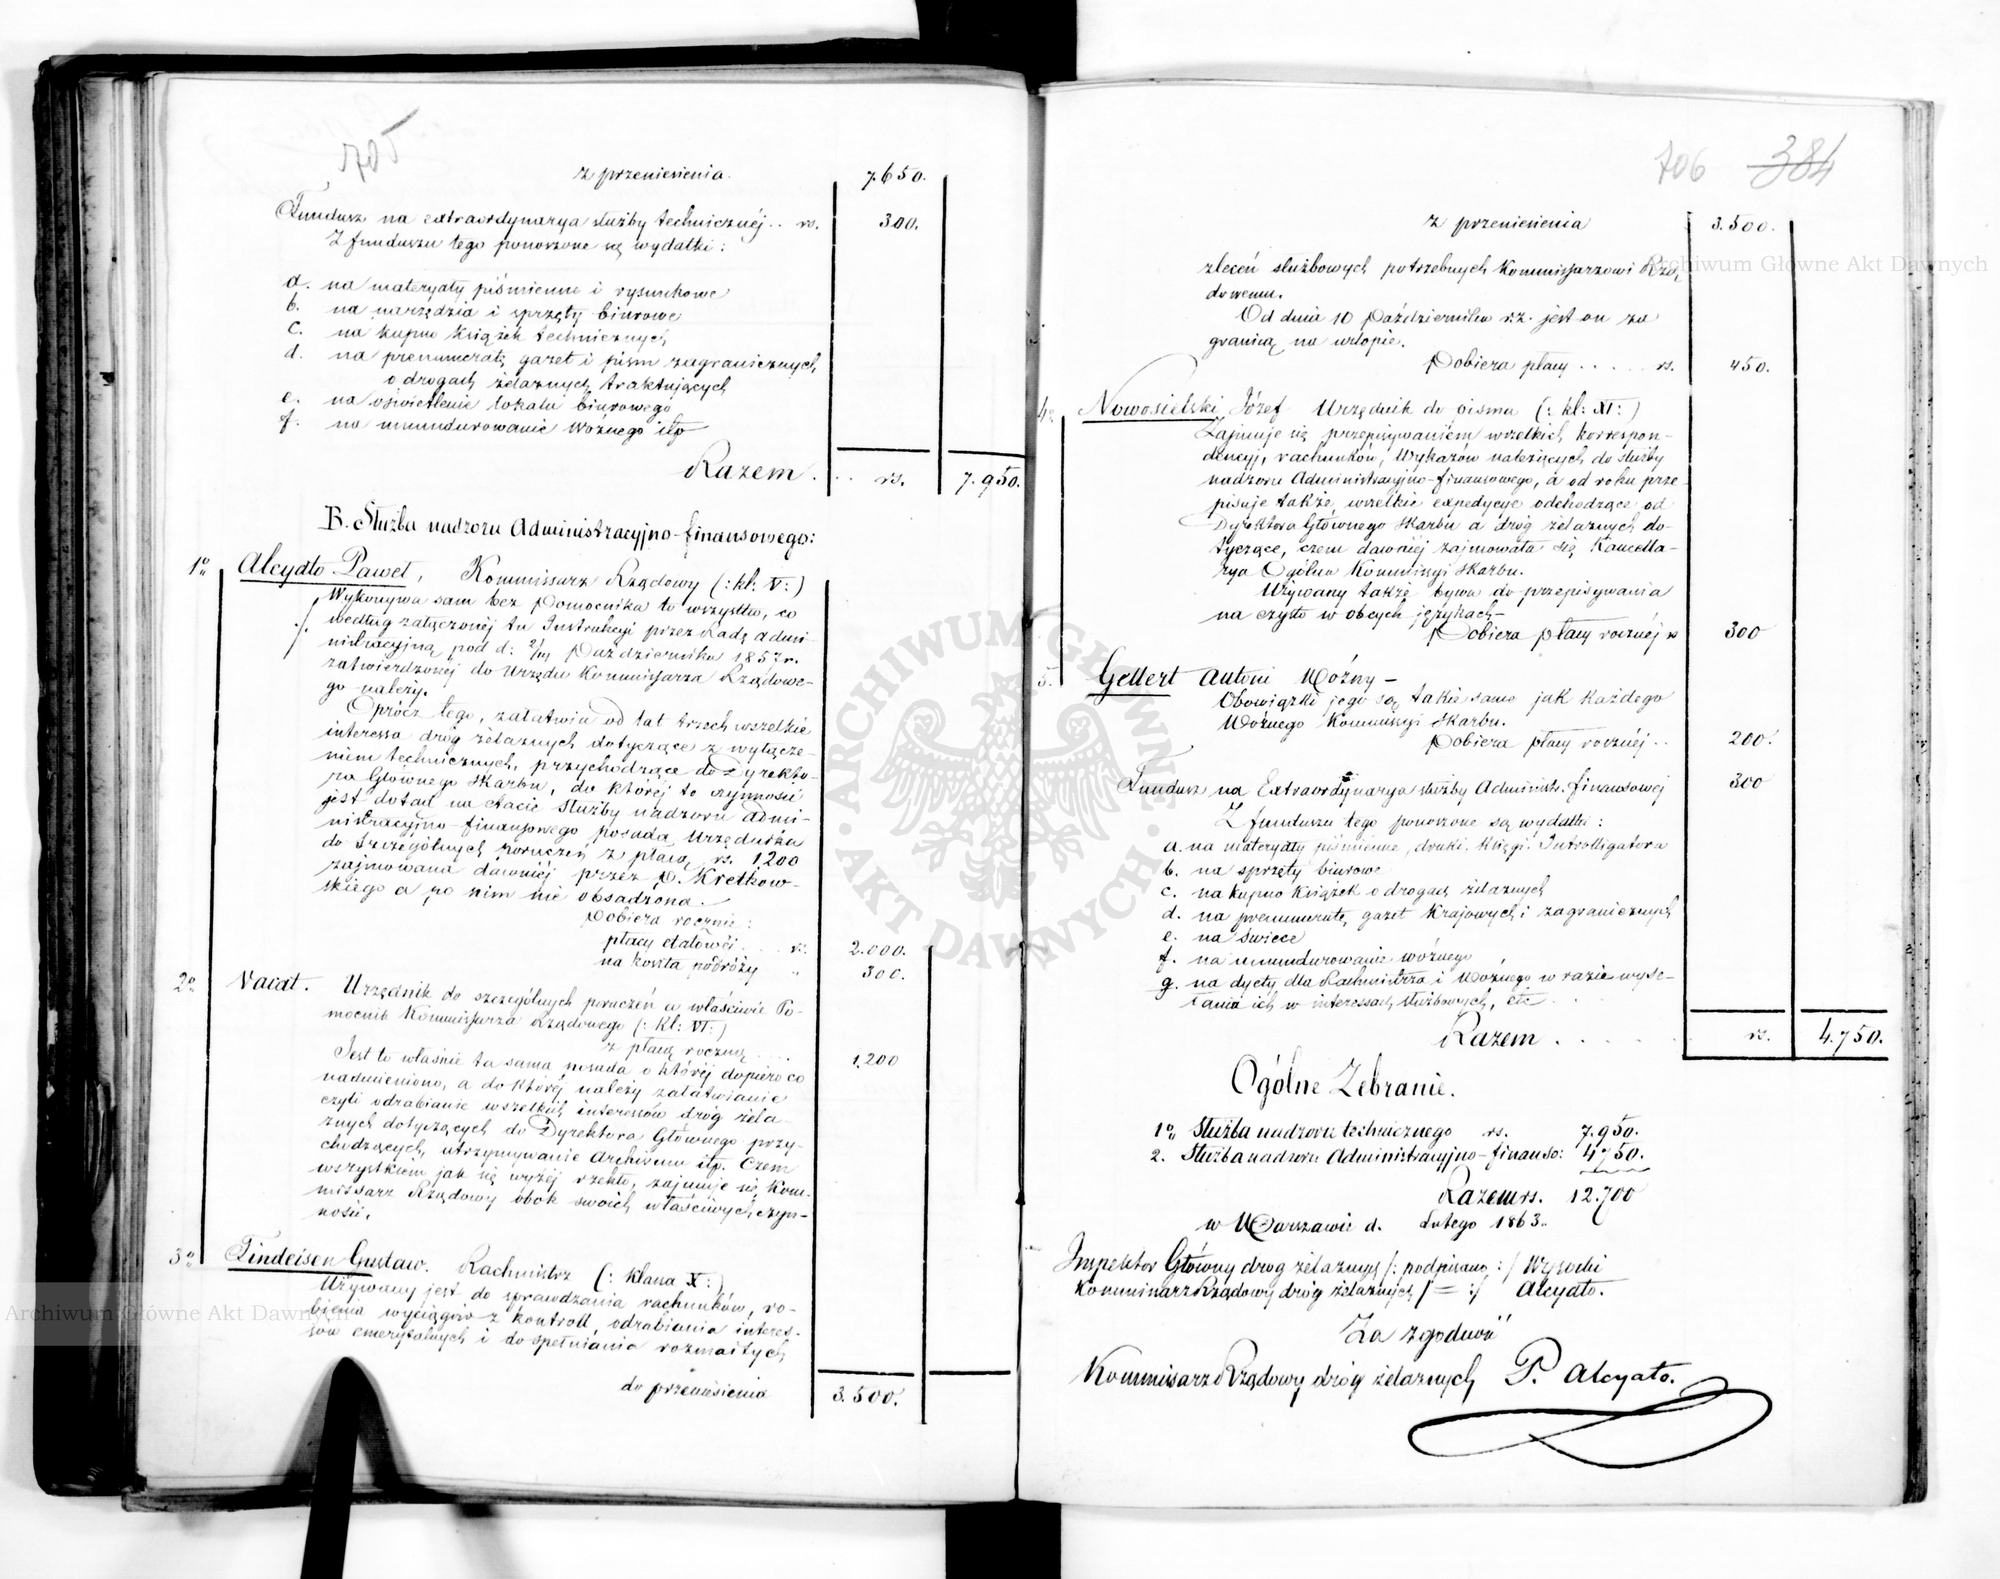 705
z przeniesienia. 7.650.
Fundusz na extraordynarya służby technicznéj .. rs. 300.
Z funduszu tego ponoszone są wydatki:
a. na materyały piśmienne i rysunkowe
b. na narzędzia i sprzęty biurowe
c. na kupno Książek technicznych
d. na prenumeratę gazet i pism zagranicznych,
o drogach żelaznych traktujących
e. na oświetlenie lokalu biurowego
f. na umundurowanie Woznego itp
Razem . .. rs. 7.950.
B. Służba nadzoru Administracyjno-finansowego:
1o Alcyato Paweł, Kommissarz Rządowy (: kl: V :)
Wykonywa sam bez Pomocnika to wszystko, co
według załączonéj tu Instrukcyi przez Radę admi-
nistracyjną pod d: 2/14 Października 1857 r.
zatwierdzonéj do Urzędu Kommissarza Rządowe-
go należy.
Oprócz tego, załatwia od lat trzech wszelkie
interessa dróg żelaznych dotyczące z wyłącze-
niem technicznych, przychodzące do Dyrekto-
ra Głównego Skarbu, do któréj to czynności
jest dotąd na etacie Służby nadzoru admi-
nistracyjno-finansowego posada Urzędnika
do szczególnych poruczeń z płacą rs. 1200
zajmowana dawniéj przez P. Kretkow-
skiego a po nim nie obsadzona.
Pobiera rocznie:
płacy etatowéj . . . rs. 2.000.
na koszta podróży " 300.
2o Vacat. Urzędnik do szczególnych poruczeń a właściwie Po-
mocnik Kommissarza Rządowego (: kl: VI :)
z płacą roczną . . . . 1,200
Jest to właśnie ta sama posada o któréj dopiero co
nadmieniono, a do któréj należy załatwianie
czyli odrabianie wszelkich interessów dróg żela-
znych dotyczących do Dyrektora Głównego przy-
chodzących, utrzymywanie Archiwum itp. Czem
wszystkiem jak się wyżéj rzekło, zajmuje się Kom-
missarz Rządowy obok swoich właściwych czyn-
ności.
3o Findeisen Gustaw. Rachmistrz (: klassa X :)
Używany jest do sprawdzania rachunków, ro-
bienia wyciągów z kontroll, odrabiania interes-
sów emerytalnych i do spełniania rozmaitych
do przeniesienia 3.500.
706 384
z przeniesienia 3.500.
zleceń służbowych potrzebnych Kommissarzowi Rzą-
dowemu.
Od dnia 10 Października r.z. jest on za
granicą na urlopie.
Pobiera płacy . . . . . rs. 450.
4o Nowosielski Józef Urzędnik do pisma (: kl: XI :)
Zajmuje się przepisywaniem wszelkich korrespon-
dencyj, rachunków, Wykazów należących do służby
nadzoru Administracyjno-finansowego, a od roku prze-
pisuje także, wszelkie expedycye odchodzące od
Dyrektora Głównego Skarbu a dróg żelaznych do-
tyczące, czem dawniéj zajmowała się Kancella-
rya Ogólna Kommissyi Skarbu.
Używany także bywa do przepisywania
na czysto w obcych językach-
Pobiera płacy rocznéj rs 300
5. Gellert Antoni Woźny -
Obowiązki jego są takie same jak każdego
Woźnego Kommissyi Skarbu.
Pobiera płacy rocznéj .. 200.
Fundusz na Extraordynarya służby Administr. finansowej 300
Z funduszu tego ponoszone są wydatki:
a. na materyały piśmienne, druki. Księgi. Introlligatora
b. na sprzęty biurowe
c. na kupno Książek o drogach żelaznych
d. na prenumeratę gazet Krajowych i zagranicznych
e. na świece
f. na umundurowanie woźnego
g. na dyety dla Rachmistrza i Woźnego w razie wyse-
łania ich w interessach służbowych, etc . .
Razem . . . . . . rs. 4.750.
Ogólne Zebranie.
1o Służba nadzoru technicznego rs. 7.950.
2. Służba nadzoru Administracyjno-finanso: 4.750.
Razem rs. 12.700
w Warszawie d. Lutego 1863.
Inspektor Główny drog żelaznych /: podpisano :/ Wysocki
Kommissarz Rządowy dróg żelaznych /: = :/ Alcyato.
Za zgodność
Kommissarz Rządowy dróg żelaznych P. Alcyato.
Archiwum Główne Akt Dawnych
Archiwum Główne Akt Dawnych
· ARCHIWUM GŁÓWNE · AKT DAWNYCH